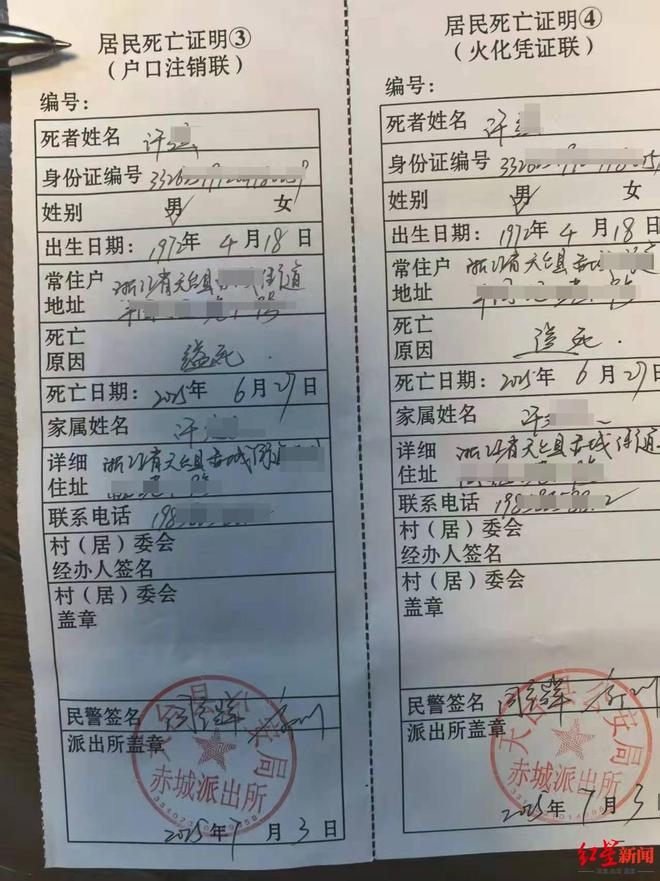 居民死亡证明③
（户口注销联）
编号：
死者姓名 许
身份证编号
姓别 男 女
出生日期：1972年 4月18日
常住户 浙江省天台县 街道
地址
死亡
原因 缢死.
死亡日期：2025年 6月27日
家属姓名 许
详细 浙江省天台县赤城街
住址
联系电话 198
村（居）委会
经办人签名
村（居）委会
盖章
民警签名
派出所盖章
天台县公安局
赤城派出所
2025年7月3日
居民死亡证明④
（火化凭证联）
编号：
死者姓名 许
身份证编号
姓别 男 女
出生日期：1972年 4月18
常住户 浙江省天台县赤城
地址
死亡
原因 缢死.
死亡日期：2025年 6月27日
家属姓名 许
详细 浙江省天台县赤城街道
住址
联系电话 198
村（居）委会
经办人签名
村（居）委会
盖章
民警签名
派出所盖章
天台县公安局
赤城派出所
2025年7月3日
红星新闻